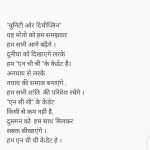 "युनिटी और दिसीप्लिन"
यह मोतो को हम समझकर
हम सभी आगे बढ़ेंगे।
दुनीया को दिखाएंगे लरके
हम "एन सी सी "के केडेट है।
अनयाय से लरके
नयाय की समाज बनाएंगे ,
हम सभी शांति की परिवेश रचेंगे ।
"एन सी सी" के केडेट
किसी से कम नही है,
दुसमन को हम साथ मिलकर
सबक सीखाएंगे ।
हम एन सी सी केडेट है ।